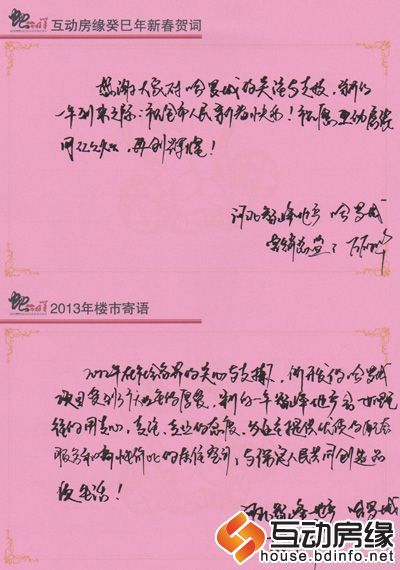 互动房缘癸巳年新春贺词
感谢大家对哈罗城的关注与支持,新的
一年到来之际:祝全市人民新春快乐!祝愿互动房缘
网 再创辉煌!
河北智峰地产 哈罗城
营销总监:
2013年楼市寄语
2012年在社会各界的关心与支持下,所开发的哈罗城
项目受到了广大 的厚爱,新的一年智峰地产会一如既
往的用 心,专注、专业的态度,为业主提供优质的
服务和 的居住空间,与保定人民共同创造品
质生活!
河北智峰地产 哈罗城
互动房缘
house.bdinfo.net